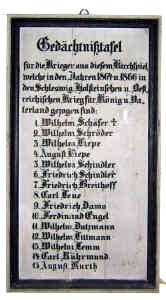 Gedächtnißtafel
für die Krieger aus diesem Kirchspiel
welche in den Jahren 1864 u 1866 in
den Schleswig Holsteinschen u. Öst
reichischen Krieg für König u Va
terland gezogen sind:
1. Wilhelm Schäfer †
2. Wilhelm Schröder
3. Wilhelm Liepe
4. August Liepe
5. Wilhelm Schindler
6. Friedrich Schindler
7. Friedrich Breithoff
8. Carl Lene
9. Friedrich Damo
10. Ferdinand Engel
11. Wilhelm Dutzmann
12. Wilhelm Tittmann
13. Wilhelm Lemm
14. Carl Rührmund
15. August Kurth